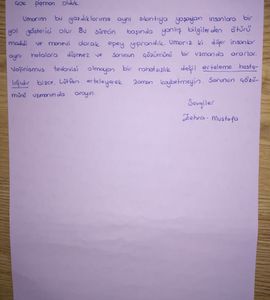 çok pişman olduk.
Umarım bu yazdıklarımız aynı sıkıntıyı yaşayan insanlara bir
yol gösterici olur. Bu sürecin başında yanlış bilgilerden ötürü
maddi ve manevi olarak epey yıprandık. Umarız ki diğer insanlar
aynı hatalara düşmez ve sorunun çözümünü bir uzmanda ararlar.
Vajinismus tedavisi olmayan bir rahatsızlık değil erteleme hasta-
lığıdır bizce. Lütfen erteleyerek zaman kaybetmeyin. Sorunun çözü-
münü uzmanında arayın.
Sevgiler
Zehra - Mustafa